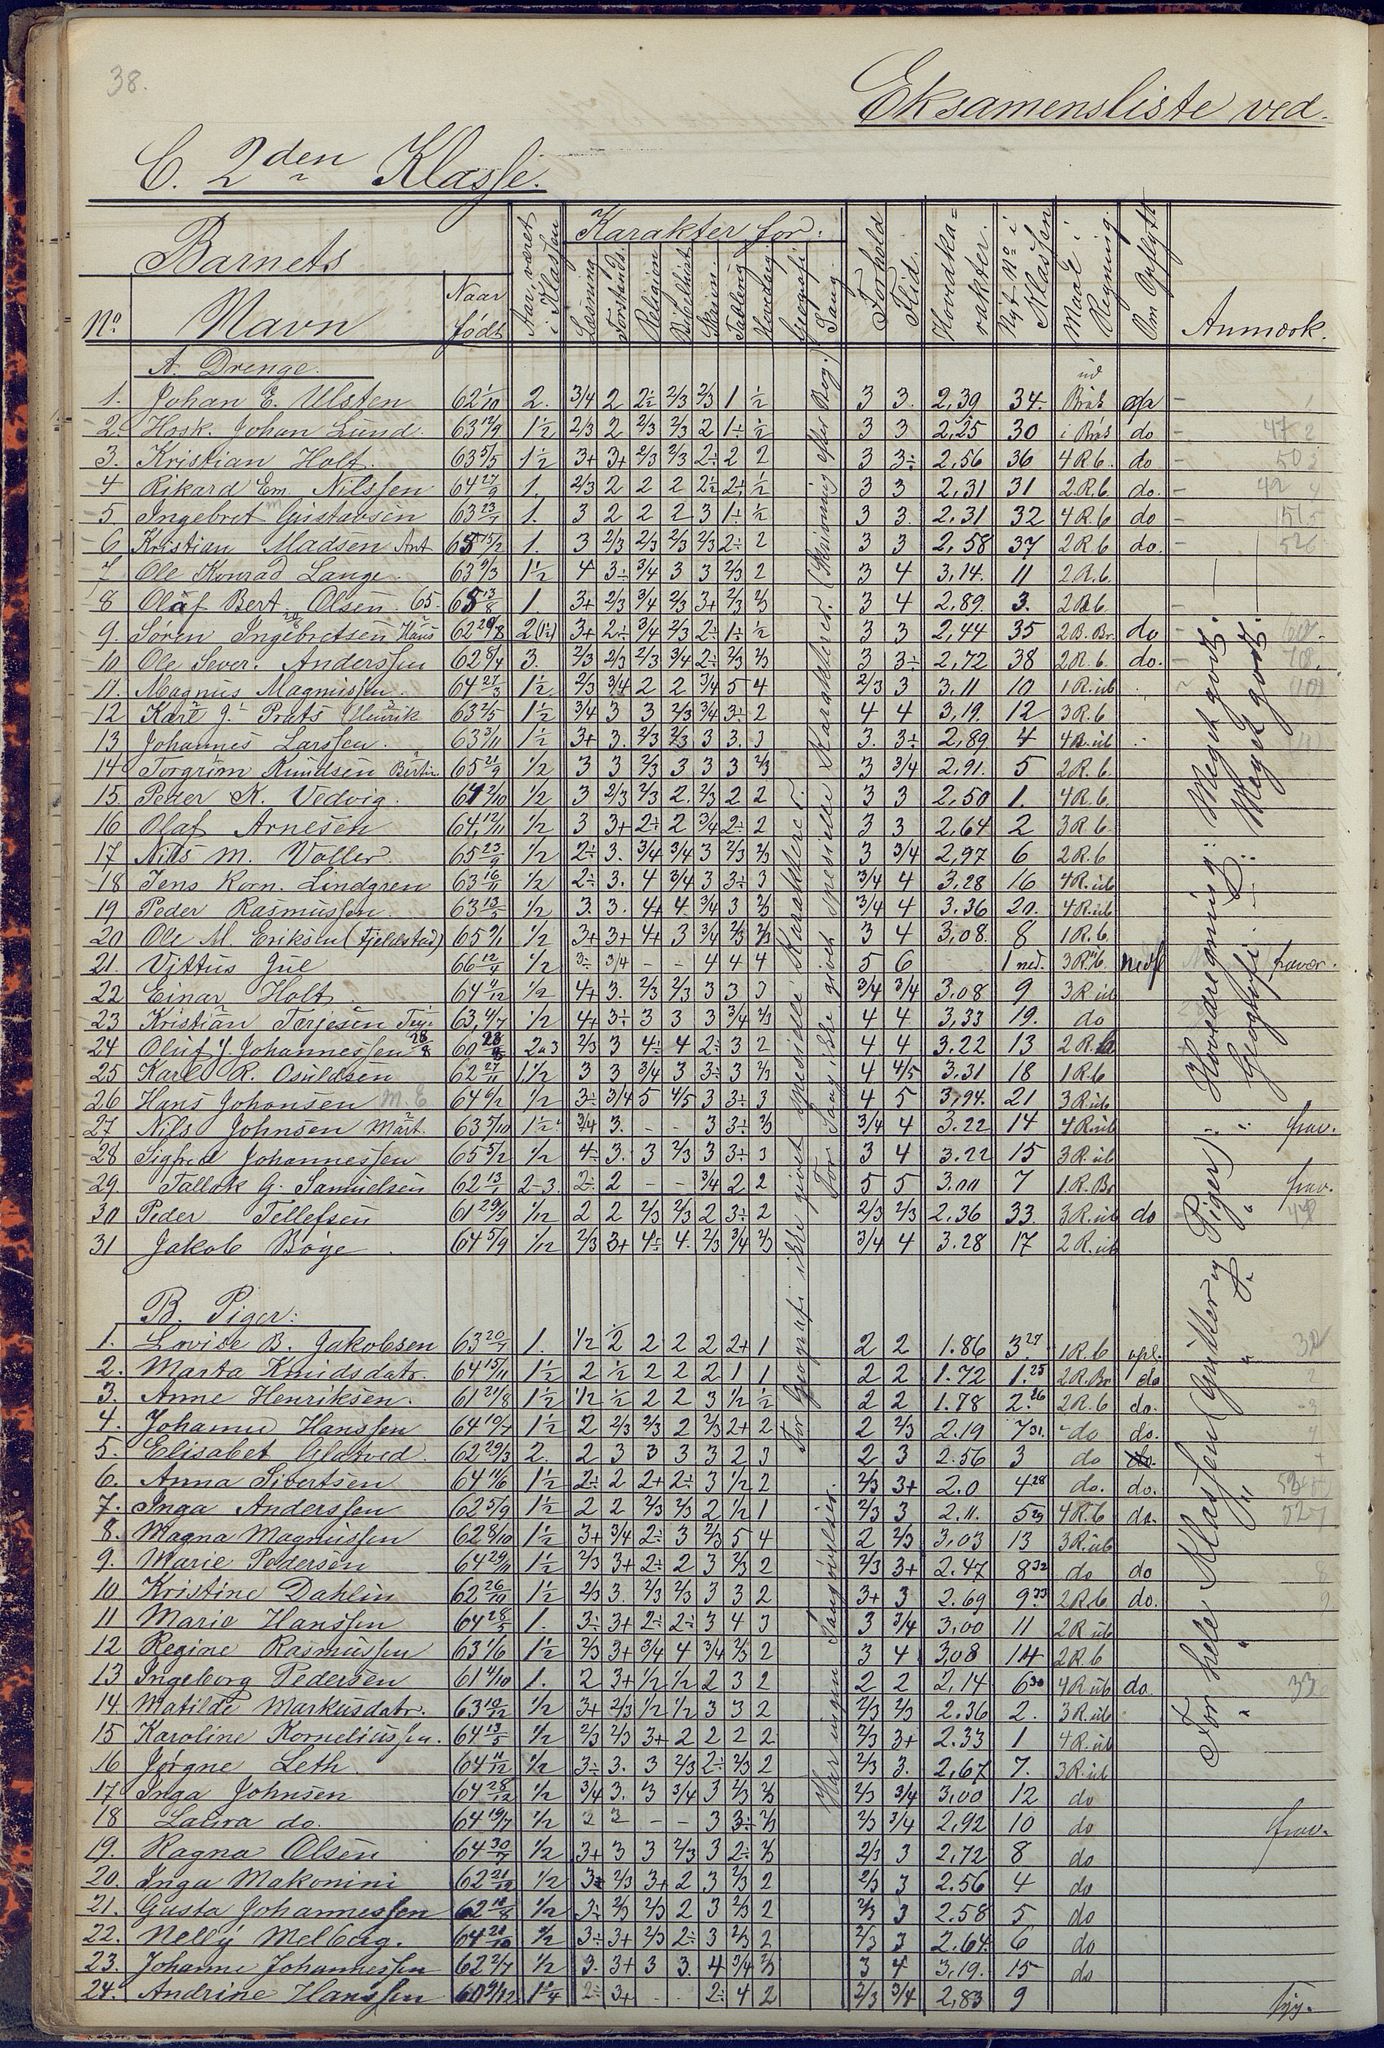 38.
Eksamensliste ved
C. 2den Klasse.
Barnets
No. Navn Naar født Aar, været i Klassen Karakter for: Læsning Forstands. Religion Bibelhist. Skrivn. Tavlereg. Hovedreg. Geografi Sang Forhold Flid. Hovedkarakter. Nyt No i Klassen Maal i Regning Om Opflytt Anmærk.
A. Drenge.
1. Johan E. Ulsten 62 1/10 2. 3/4 2 2÷ 2/3 2/3 1 ½ 3 3. 2,39 34. ud Brøk opfl
2. Hosk. Johan Lund. 63 12/9 1½ 2/3 2 2/3 2/3 2 1÷ ½ 3 3 2,25 30 i Brøk do 47 2
3. Kristian Holt 63 5/5 1½ 3+ 3+ 2/3 2/3 2÷ 2 2 3 3÷ 2,56 36 4 R b. do 50 3
4 Rikard Em. Nilssen 64 27/9 1. 2/3 2 2 2 2½ 2÷ ½ 3 3 2,31 31 2.R.b do. 42 4
5 Ingebret Gustavsen 63 23/7 1. 3 2 2 2 3 1÷ ½ 3 3. 2,31 32 4 R.b do
6 Kristian Madsen Ant 65 15/2 1. 3 2/3 2/3 2/3 2/3 2÷ 2 3 3 2,58 37 2 R.b do.
7 Ole Konrad Lange. 63 9/3 1½ 4 3÷ 3/4 3 3 2/3 2 3 4 3,14. 11 2 R.b.
8 Olaf Bert. Olsen. 65. 65 13/8 1. 3+ 2/3 3/4 2/3 3+ 2/3 2/3 3 4 2,89. 3. 2 R b.
9. Søren Ingebretsen Hans 62 29/8 2(1½) 3+ 2÷ 3/4 2/3 2÷ 1÷ ½ 3 3 2,44 35 2 B.Br. do
10 Ole Sever. Anderssen 62 8/4 3. 2/3 2/3 2/3 3/4 2÷ 2/3 2/3 3 3÷ 2,72 38 2 R.b. do.
11. Magnus Magnussen. 64 27/3 1½ 2/3 3/4 2 2 3/4 5 4 2/3 3 3,11 10 1 R.ub
12 Karl J. Prats Henrik 63 2/5 1½ 3/4 3 3 2/3 3/4 3÷ 2 4 4 3,19. 12 3 R.b
13 Johannes Larssen. 63 3/11 1½ 3+ 3. 2/3 2/3 3 3. 3 3. 3÷ 2,89 4 4 R.ub
14 Torgrim Knudsen 65 21/9 1/2 3 3 2/3 3 3 3 2/3 3 3/4 2,91. 5 2 R.b.
15. Peder K. Vedvig. 64 2/10 1/2 3 2/3 2/3 2. 2/3 2 2 3 3 2,50 1. 4 R.b.
16 Olaf Arnesen 64 12/11 1/2 3 3+ 2÷ 2 3/4 2÷ 2 3 3 2,64 2 3 R.b.
17 Nils M. Voller 65 23/9 1/2 2÷ 3. 3/4 3/4 3 2/3 2/3 3 3/4 2,97 6 2 R.b
18 Jens Korn. Lindgren 63 16/11 1/2 2÷ 3. 4 3/4 3 3÷ 3 3/4 4 3.28 16 4 R.ub
19 Peder Rasmussen. 63 13/5 1/2 3. 3. 4+ 4 3/4 3 2/3 3/4 4 3.36 20. 4 R.ub
20 Ole M. Eriksen (Fjeldstad) 65 9/1 1/2 3+ 3+ 4+ 3 3/4 2/3 2/3 3 4 3,08. 8 1 R.b.
21. Vittus Jul 66 12/4 1/2 3÷ 3/4 - - 4 4 4 5 6 1 ned. 3 R"b nedfl fravær.
22 Einar Holt 64 4/12 1/2 4+ 3. 2/3 2/3 3 3 3 3/4 3/4 3,08 9 3 R ub
23 Kristian Terjesen 63 4/7 1/2 4+ 3÷ 3 3 3 3/4 2/3 4 4 3,33 19. do
24 Oluf J. Johannessen 28/8 60 28/8 2 a 3 2/3 3 4÷ 4 2÷ 3 2 4 4 3.22 13 2 R.
25 Karl R. Osuldsen 62 27/11 1½ 3 3 3/4 3 3÷ 3 2/3 4 4/5 3.31 18 1 R.b
26 Hans Johansen M. E 64 6/2 1/2 3÷ 3/4 5 4/5 3 3÷ 3 4 5 3,94. 21 3 R.ub
27 Nils Johnsen Mart. 63 5/10 1½ 3/4 3. - - 3 3÷ 2/3 3/4 4 3.22 14 4 R.ub frav.
28 Sigfred Johannessen 65 5/2 1/2 4÷ 3. 3 2/3 3 3÷ 3 3 4 3.22 15 3 R.ub
29. Tallak G. Samuelsen 62 13/1 2-3. 2÷ 2 - - 3/4 2 2 5 5 3.00 7 1 R.Br frav.
30 Peder Tellefsen 61 29/9 1/12 2 2 2/3 2/3 2 3÷ 2 2/3 2/3 2.36 33 3 R.ub do
31 Jakob Bøge 64 5/9 1/12 2/3 3+ 4÷ 4. 2/3 3/4 2/3 3/4 4 3.28 17 2 R.ub
B. Piger:
1. Lovise B. Jakobsen 63 20/7 1. 1/2 ½ 2 2 2 2+ 1 2 2 1.86 3.27 1 R.b opl.
2. Marta Knudsdatr. 64 15/11 1½ 2 ½ 2 2 2 1 1 2 2 1.72 1.25 2 R.Br do
3. Anne Henriksen. 61 21/8 1½ 1/2 ½ 2 2 3 1/2 ½ 2 2 1.78 2.26 2 R.b do.
4. Johanne Hanssen 64 10/7 1½ 2 2/3 2/3 2 2/3 2+ 2 2 2/3 2.19 7 31. do do.
5. Elisabet Glatved 62 29/3 2. 2 3 3 3 3 2 3 2 3 2.56 3 do do.
6. Anna Sivertsen 64 11/6 1½ 2÷ 2 2+ 2÷ 3 1/2 2 2/3 3+ 2.0 4 28 do. do.
7. Inga Anderssen 62 5/9 1½ 2 2 2/3 2/3 2 1/2 1 2/3 3 2.11. 5 29 4 R.b do.
8. Magna Magnussen 62 8/10 1½ 3+ 3/4 2÷ 3 2/3 5 4 2 2/3 3,03 13 3 R.ub
9. Marie Pedersen 64 29/11 1½ 2/3 3+ 2÷ 2 3 2/3 2 2/3 3+ 2.47 8 32 do do
10 Kristine Dahlin 62 26/10 1½ 2/3 3. 2/3 2/3 3 3 2 3+ 3 2.69 9.33 2 R.b do.
11 Marie Hanssen 64 28/5 1. 3÷ 3+ 2÷ 2÷ 3 4 3 3 3/4 3,00 11 2 R ub
12 Regine Rasmussen 63 1/6 1½ 2/3 3+ 3/4 4 3/4 2/3 2 3 4 3,08 14 2 R.b
13 Ingeborg Pedersen 61 4/10 1. 2 3+ 1/2 1/2 2 3 2 2 2 2,14 6 30 4 R.ub do.
14. Matilde Markusdatr. 63 10/12 1/2 3+ 2/3 1/2 1/2 3 3 2 2/3 2/3 2.36 2. 3 R.ub
15 Karoline Korneliussen. 64 13/5 1/2 2/3 2/3 3+ 2 2 2 2 2/3 3+ 2.33 1 4 R.ub
16 Jørgne Leth 64 11/12 1/2 3÷ 3. 3 2/3 2÷ 2/3 2 2/3 3. 2,67 7. 3 R.ub
17 Inga Johnsen 64 28/12 1/2 3/4 3. 3 3/4 3 2/3 2/3 2/3 3/4 3,00 12 do
18 Laura do. 64 19/7 1/2 2 3 - - 3 3÷ 2/3 2/3 3/4 2,92 10 do frav.
19. Ragna Olsen 64 30/7 1/2 3+ 3 3 2/3 3 2÷ 2/3 2/3 3 2,72 8 do
20. Inga Makonini 62 21/12 1/2 3+ 2/3 3+ 2 3 2/3 2 2/3 3 2.56 4 do
21. Gusta Johannessen 62 18/8 1/2 3÷ 2/3 2/3 2 3 2/3 2 2/3 3 2.58 5 do
22. Nelly Melberg. 64 20/10 1/2 3÷ 3+ 2/3 2÷ 3 2/3 2 2/3 3 2.64. 6 do
23. Johanne Johannessen 62 2/7 1/2 3. 3+ 3 3. 4 3/4 2/3 3 4 3,19. 15 do
24. Andrine Hanssen 60 9/12 1¼ 2÷ 3+ . . 2÷ 4 2 2/3 3/4 2,83 9 syg.
For Geografi ikke givet spesielle Karakterer.
For Sang ikke givet spesielle Karakterer. (Skrivning efter Bog.)
Har ingen Sangøvelser.
For hele Klassen (Gutter og Piger). Hovedregning: Meget godt.
" " " " " Geografi: Meget godt.